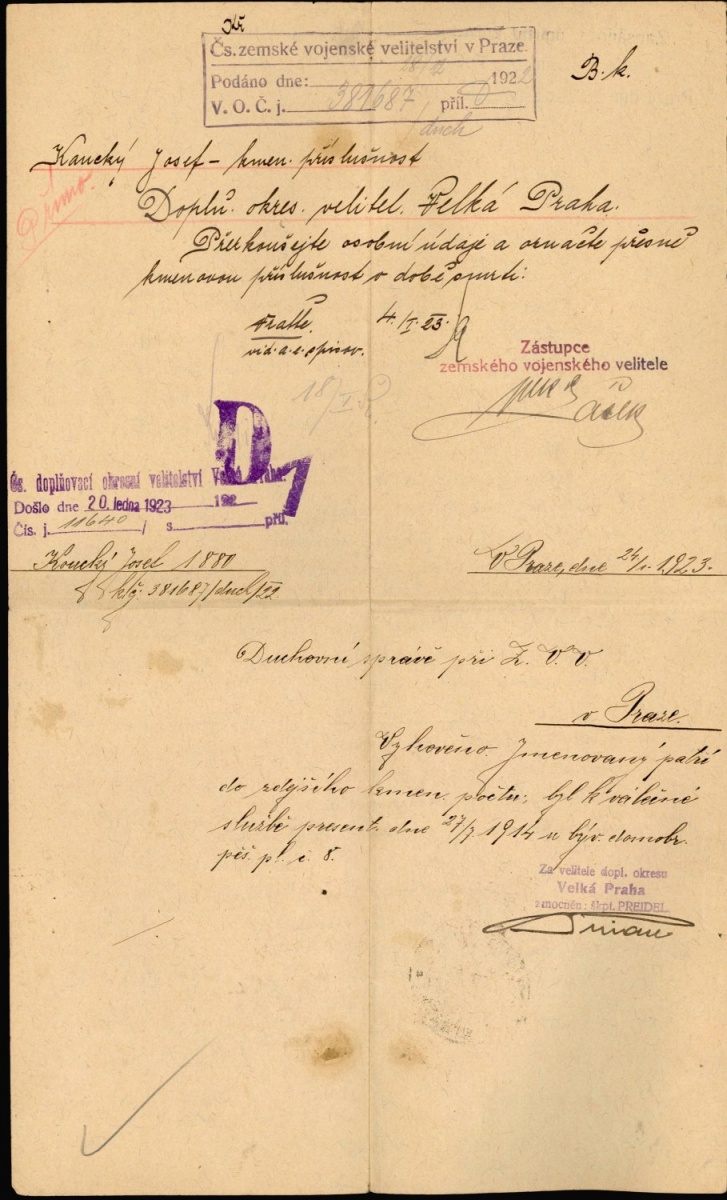 Čs. zemské vojenské velitelství v Praze.
B. k.
Podáno dne: 1922
V. O. Č. j. 381687 příl.
duch
Koucký Josef - kmen. příslušnost
Přímo.
Doplň. okres. velitel. Velká Praha.
Přezkoušejte osobní údaje a označte přesně
kmenovou příslušnost v době smrti:
4./I. 23.
vid. a. e. spisov.
Zástupce
zemského vojenského velitele
18/I.
D
7
Čs. doplňovací okresní velitelství Velká Praha.
Došlo dne 20. ledna 1923 192
Čís. j. 11640 / s příl.
Koucký Josef 1880
V Praze, dne 24/1. 1923.
k čj. 381687/duch/22
Duchovní správě při Z. V. V.
v Praze.
Vyhověno. Jmenovaný patří
do zdejšího kmen. počtu, byl k válečné
službě present. dne 27/7 1914 u býv. domobr.
pěš. pl. č. 8.
Za velitele dopl. okresu
Velká Praha
zmocněn: škpt. PREIDEL